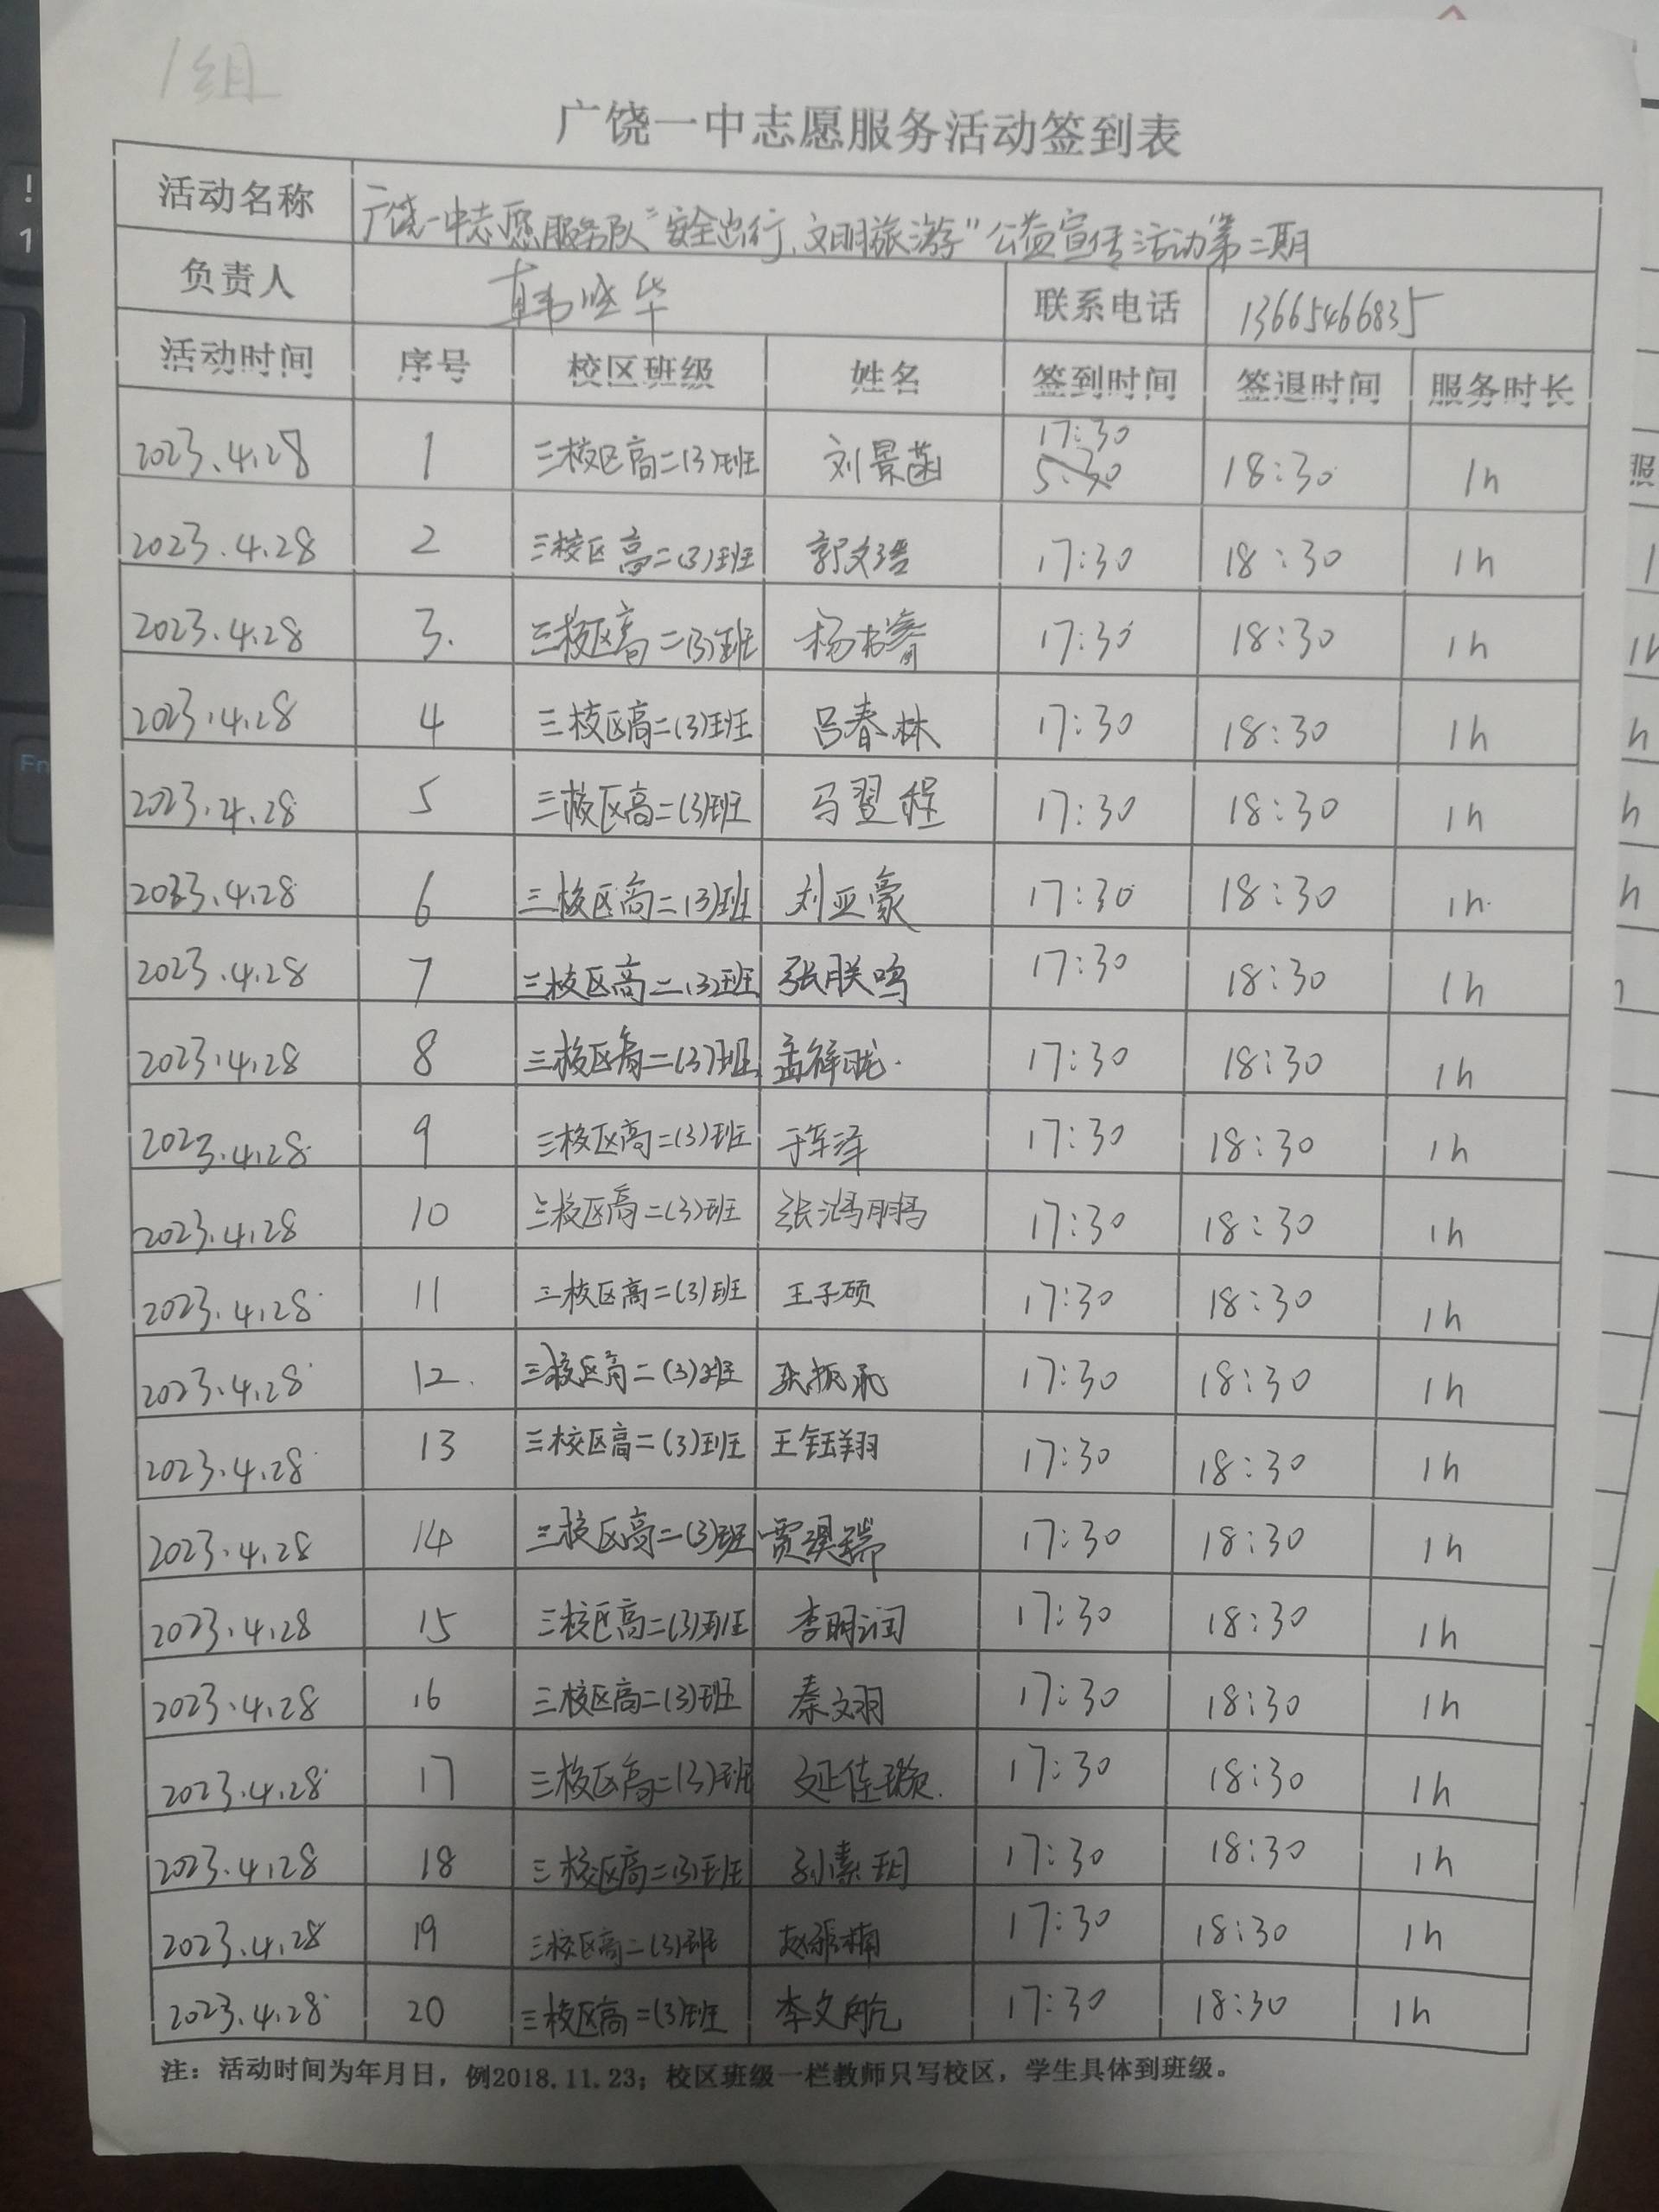 1组
广饶一中志愿服务活动签到表
活动名称 广饶一中志愿服务队"安全出行,文明旅游"公益宣传活动第二期
负责人 韩晓华 联系电话 13665466835
活动时间 序号 校区班级 姓名 签到时间 签退时间 服务时长
2023.4.28 1 三校区高二(3)班 刘景菡 17:30 5:30 18:30 1h
2023.4.28 2 三校区高二(3)班 郭文浩 17:30 18:30 1h
2023.4.28 3. 三校区高二(3)班 杨书睿 17:30 18:30 1h
2023.4.28 4 三校区高二(3)班 吕春林 17:30 18:30 1h
2023.4.28 5 三校区高二(3)班 马翌程 17:30 18:30 1h
2023.4.28 6 三校区高二(3)班 刘亚豪 17:30 18:30 1h
2023.4.28 7 三校区高二(3)班 张朕鸣 17:30 18:30 1h
2023.4.28 8 三校区高二(3)班 孟祥昽 17:30 18:30 1h
2023.4.28 9 三校区高二(3)班 于军泽 17:30 18:30 1h
2023.4.28 10 三校区高二(3)班 张鸿鹏 17:30 18:30 1h
2023.4.28 11 三校区高二(3)班 王子硕 17:30 18:30 1h
2023.4.28 12. 三校区高二(3)班 17:30 18:30 1h
2023.4.28 13 三校区高二(3)班 王钰翔 17:30 18:30 1h
2023.4.28 14 三校区高二(3)班 贾淇瑞 17:30 18:30 1h
2023.4.28 15 三校区高二(3)班 李明润 17:30 18:30 1h
2023.4.28 16 三校区高二(3)班 秦文羽 17:30 18:30 1h
2023.4.28 17 三校区高二(3)班 17:30 18:30 1h
2023.4.28 18 三校区高二(3)班 孙素玥 17:30 18:30 1h
2023.4.28 19 三校区高二(3)班 赵振楠 17:30 18:30 1h
2023.4.28 20 三校区高二(3)班 李文航 17:30 18:30 1h
注：活动时间为年月日，例2018.11.23；校区班级一栏教师只写校区，学生具体到班级。